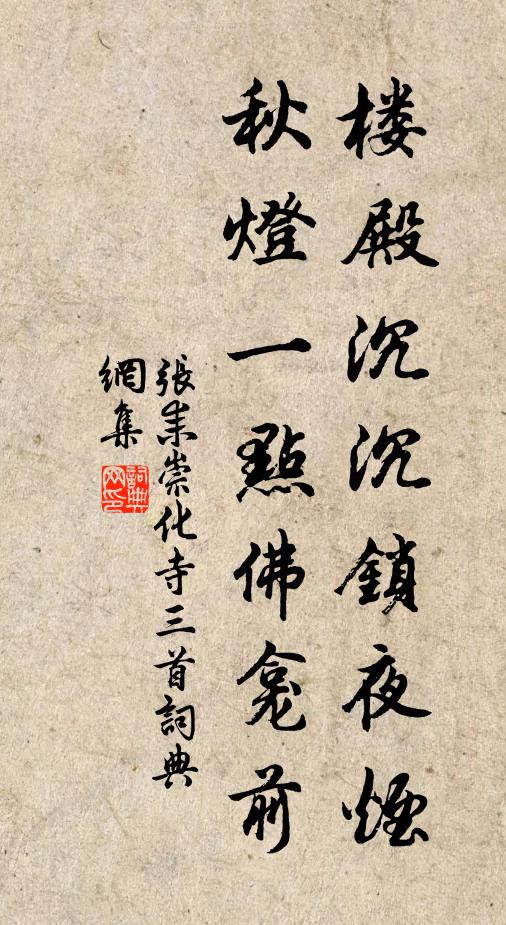 楼殿沉沉鎖夜煙
秋燈一點佛龕前
張耒崇化寺三首詞典
網集
詞典網印